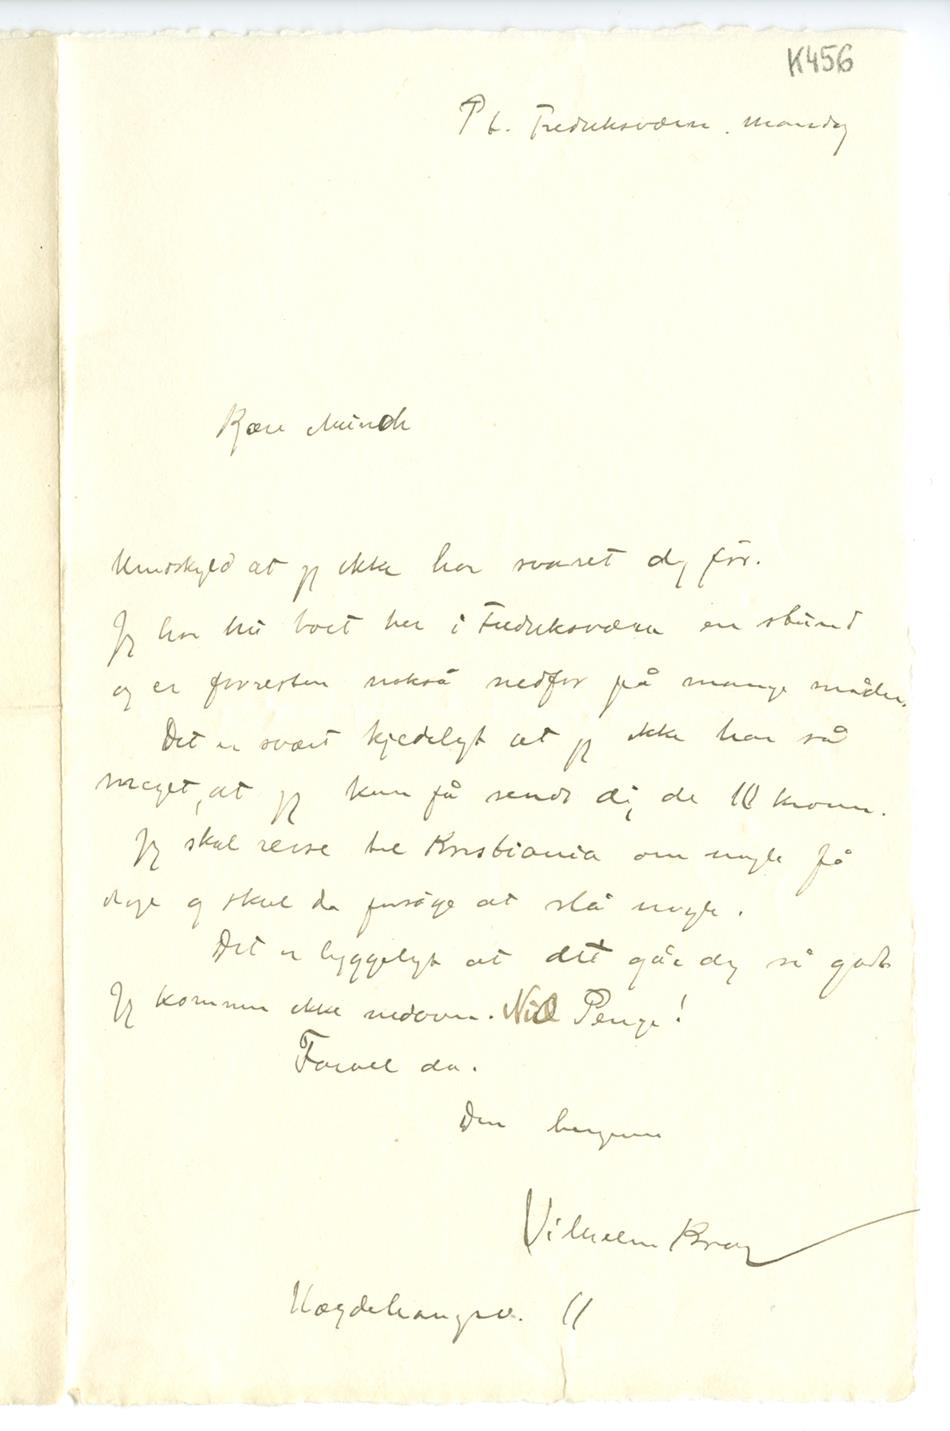 K456
Pt. Fredriksværn. Mandag
Kjære Munch
Undskyld at jeg ikke har svaret dig før.
Jeg har nu boet her i Fredriksværn en stund
og er forresten nokså nedfor på mange måder.
Det er svært kjedeligt at jeg ikke har så
meget, at jeg kan få sendt dig de 10 kroner.
Jeg skal reise til Kristiania om nogle få
dage og skal da forsøge at slå nogle.
Det er hyggeligt at det går dig så godt
Jeg kommer ikke nedover. Nil Penge!
Farvel da.
Din hengivne
Vilhelm Krag
Hægdehaugsv. 11